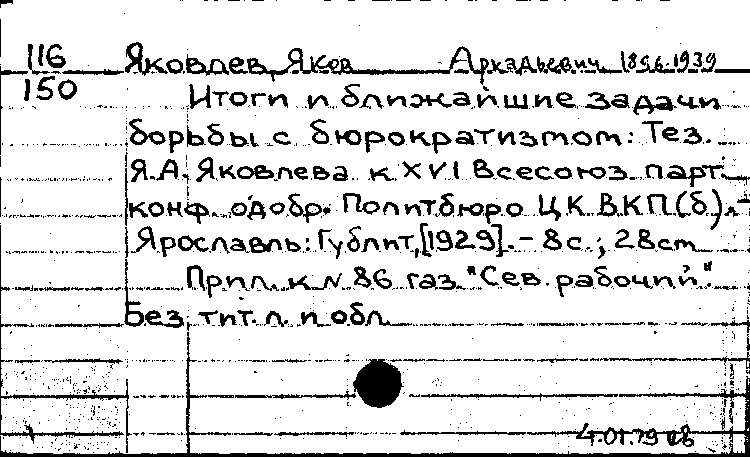 116 Яковлев, Яков Аркадьевич 1896-1939
150 Итоги и ближайшие задачи
борьбы с бюрократизмом: Тез.
Я.А. Яковлева к XVI Всесоюз. парт.
конф. одобр. Политбюро ЦК ВКП(б).-
Ярославль: Гублит, [1929]. - 8с.; 28см
Прил. к N 86 газ. "Сев. рабочий".
Без тит. л. и обл.
4.01.79